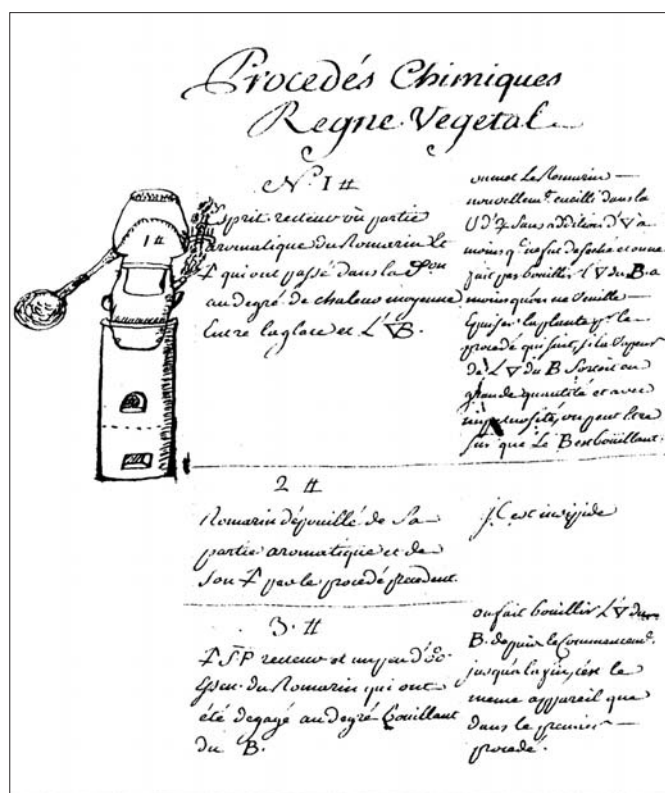 Procedés Chimiques
Regne Vegetal
N. 1 #
1 #
Esprit recteur ou partie
aromatique du Romarin et
qui ont passé dans la
au degré de chaleur moyenne
Entre la glace et L'▽B.
on met Le Romarin —
nouvellemt. cueilli dans la
sans addition d'▽ a
moins q. ne fut desseché et on ne
fait pas bouillir L'▽ du B. a
moins qu'on ne veuille —
Epuiser la plante pr. le
procedé qui suit, si la vapeur
de L'▽ du B Sortoit en
grande quantité et avec
impetuosité, on peut être
sur que Le B est bouillant.
2 #
Romarin dépouillé de Sa
partie aromatique et de
Son par le procedé precedent.
il est insipide
3. #
recteur et un peu d'
Essen. du Romarin qui ont
été degagé au degré bouillant
du B.
on fait bouillir L'▽ du
B. depuis le Commencemt.
jusqu'a la fin, c'est le
meme appareil que
dans le premier —
procedé.